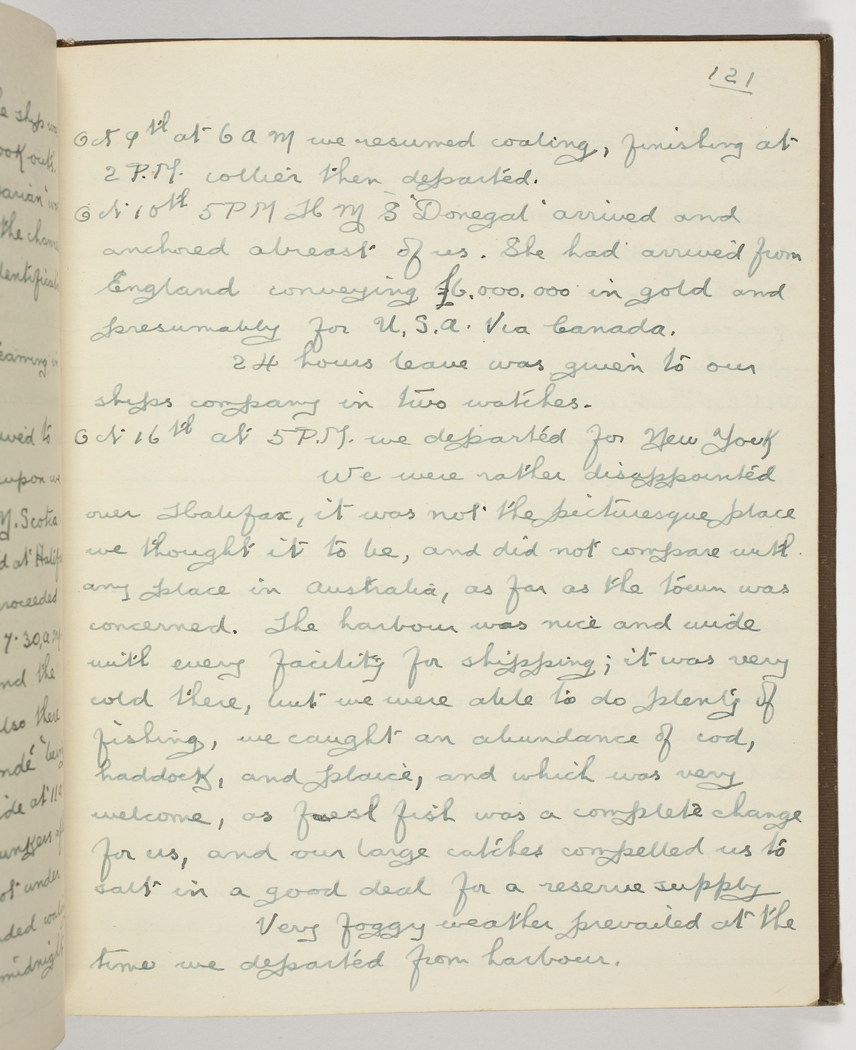 121
Oct 9th at 6 A M we resumed coaling, finishing at
2 P.M. collier then departed.
Oct 10th 5 P M H M S 'Donegal' arrived and
anchored abreast of us. She had arrived from
England conveying £6,000.000 in gold and
presumably for U.S.A. Via Canada.
24 hours leave was given to our
ships company in two watches.
Oct 16th at 5 P.M. we departed for New York
We were rather disappointed
over Halifax, it was not the picturesque place
we thought it to be, and did not compare with
any place in Australia, as far as the town was
concerned. The harbour was nice and wide
with every facility for shipping; it was very
cold there, but we were able to do plenty of
fishing, we caught an abundance of cod,
haddock, and plaice, and which was very
welcome, as fresh fish was a complete change
for us, and our large catches compelled us to
salt in a good deal for a reserve supply
Very foggy weather prevailed at the
time we departed from harbour.